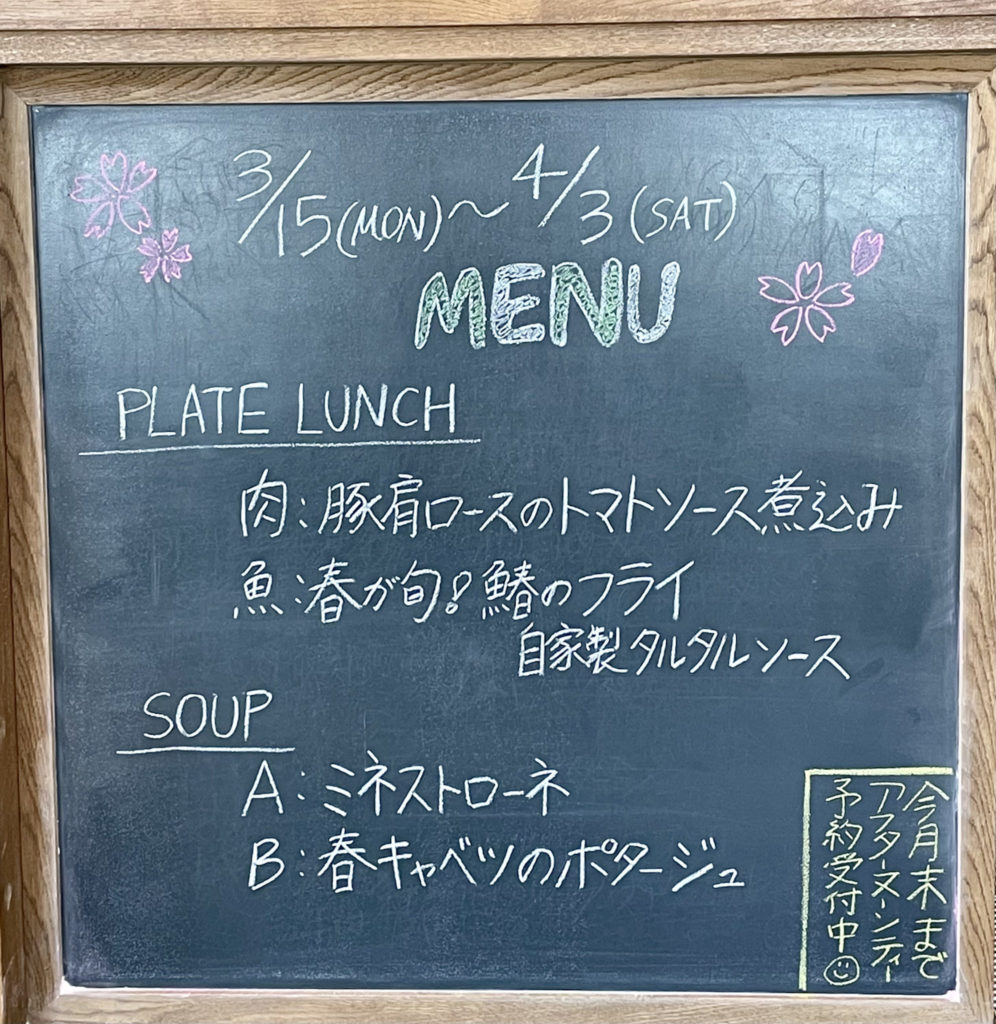 3/15(MON)〜4/3(SAT)
MENU
PLATE LUNCH
肉:豚肩ロースのトマトソース煮込み
魚:春が旬!鰆のフライ
自家製タルタルソース
SOUP
A:ミネストローネ
B:春キャベツのポタージュ
今月末まで
アフターヌーンティー
予約受付中☺